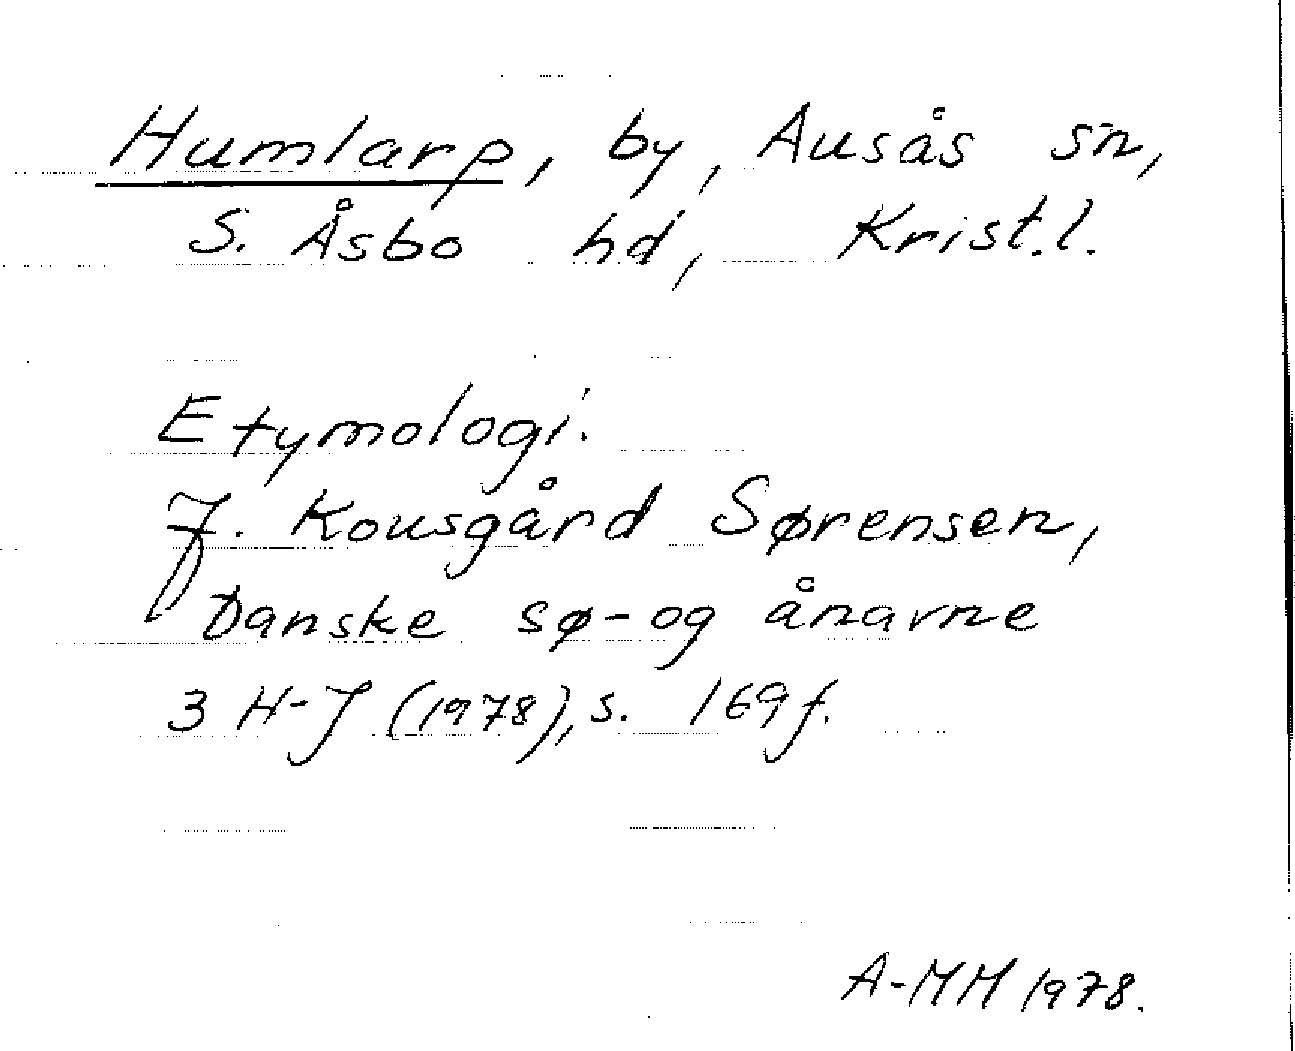 Humlarp, by, Ausås sn,
S. Åsbo hd, Krist.l.
Etymologi.
J. Kousgård Sørensen,
Danske sø- og ånavne
3 H-J (1978), s. 169 f.
A-MM 1978.